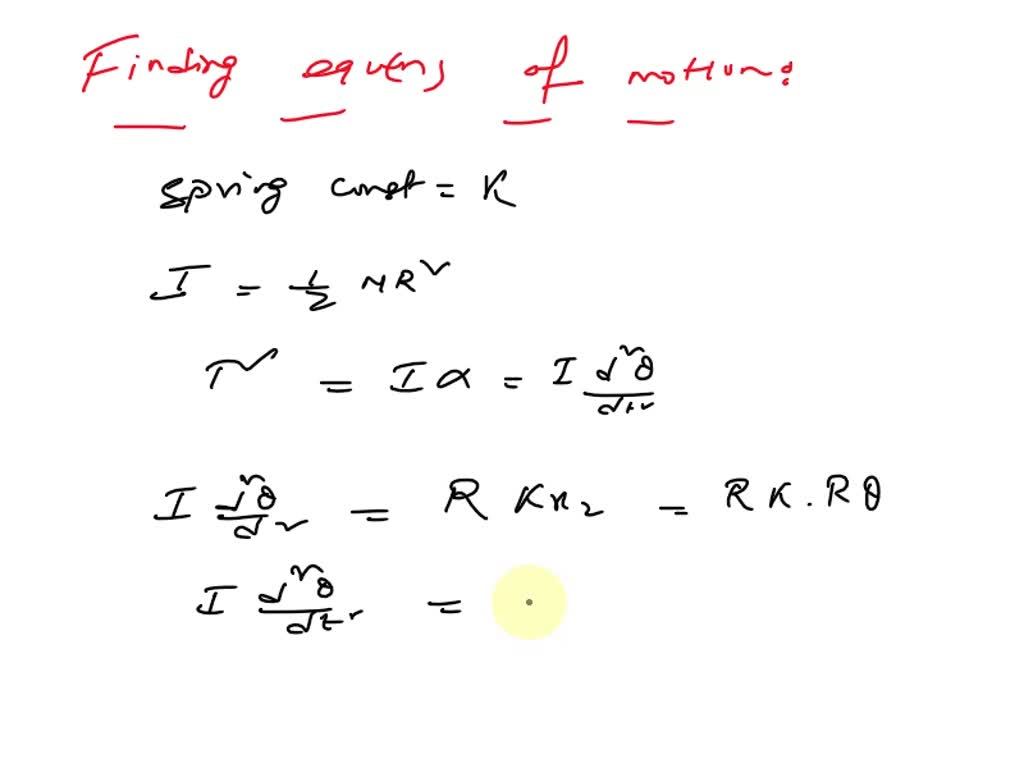 Finding equens of motiun:
Spring const = K
I = 1/2 MR²
τ = Iα = I d²θ/dt²
I d²θ/d² = R K x₂ = R K . R θ
I d²θ/dt² =